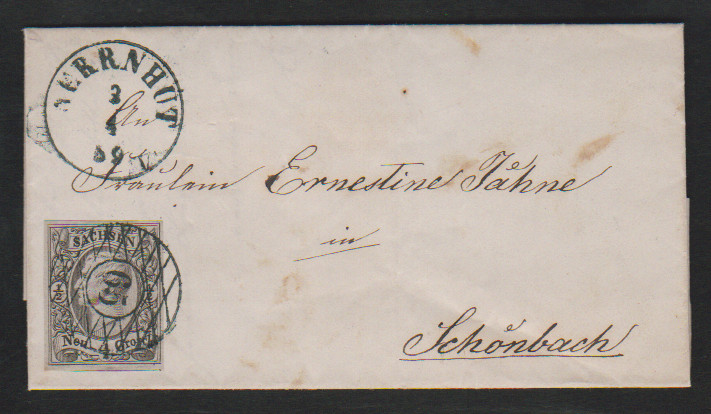 HERRNHUT
3
4
59
An
Fräulein Ernestine Jähne
in
Schönbach
SACHSEN
½ ½
Neu Grosch.